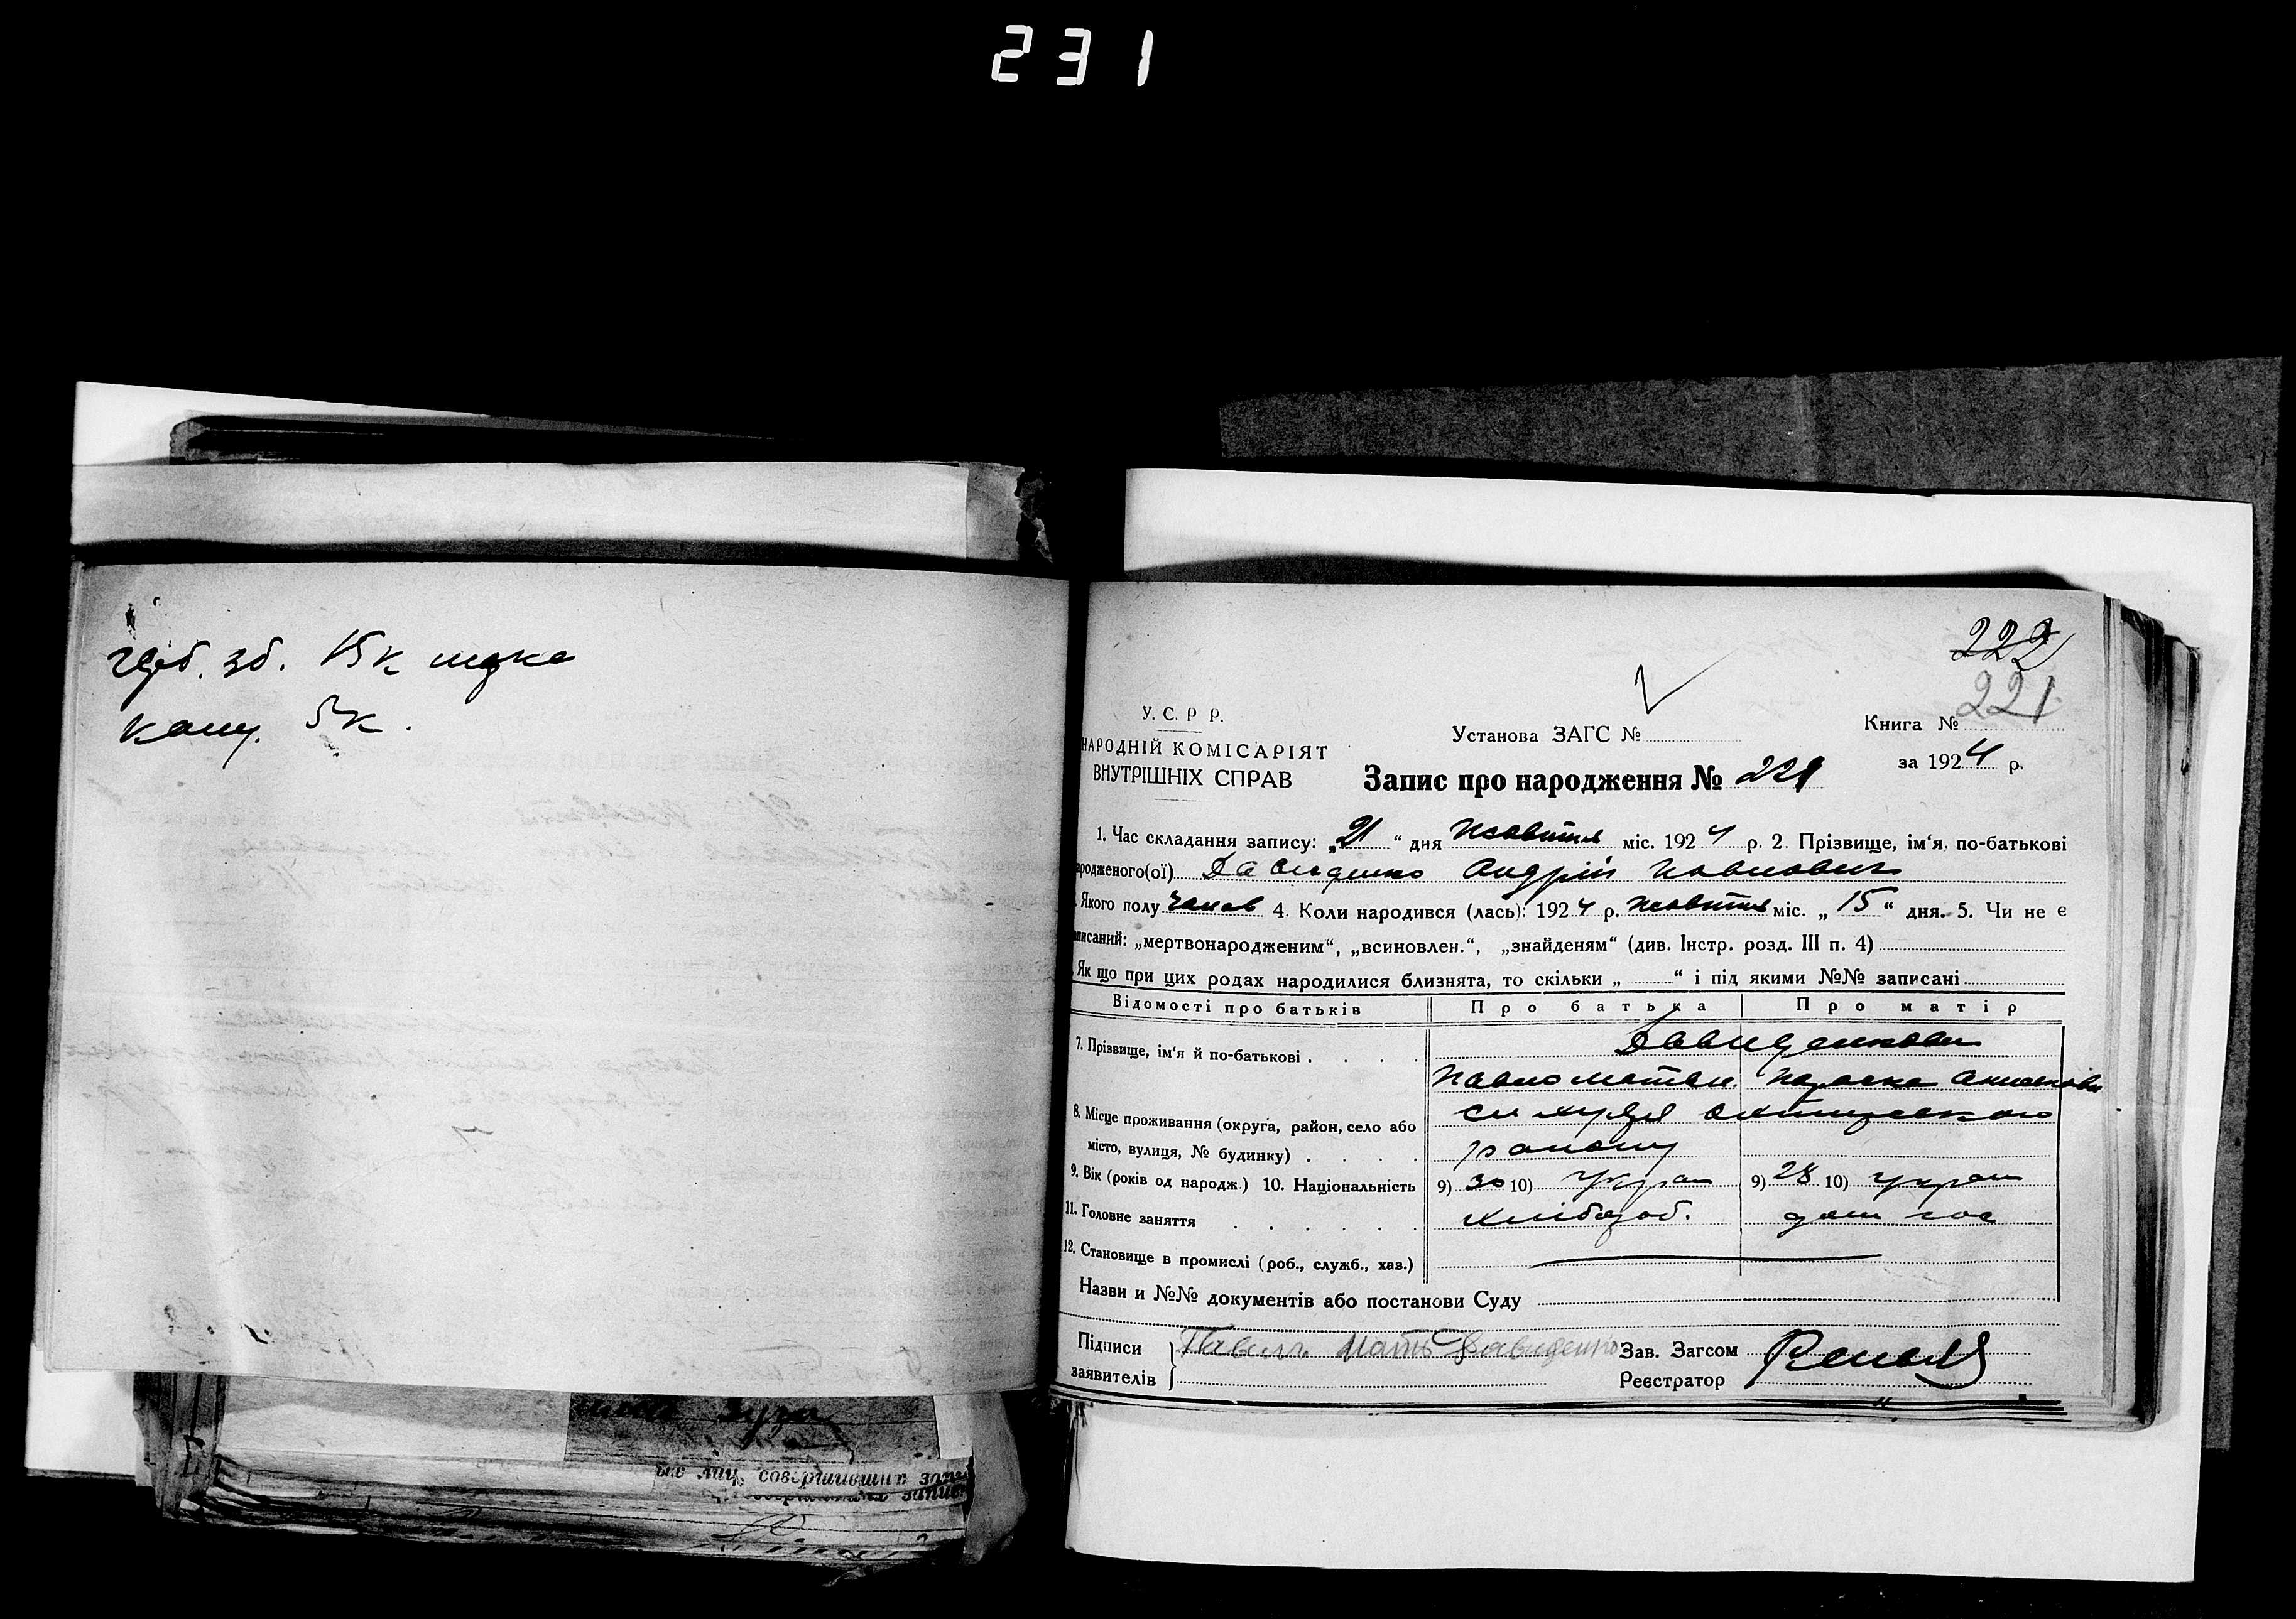 231
герб. зб. 15к
5к.
222
221
У. С. Р Р.
НАРОДНІЙ КОМІСАРІЯТ
ВНУТРІШНІХ СПРАВ
Установа ЗАГС №
Книга №
за 1924 р.
Запис про народження № 221
1. Час складання запису: „21“ дня Жовтня міс. 1924 р. 2. Прізвище, ім‘я, по-батькові
ародженого(ої) Давиденко Андрій Павлович
Якого полу чолов 4. Коли народився (лась): 1924 р. Жовтня міс. „15“ дня. 5. Чи не є
аписаний: „мертвонародженим“, „всиновлен.“, „знайденям“ (див. Інстр. розд. III п. 4)
Як що при цих родах народилися близнята, то скільки „ “ і під якими №№ записані
Відомості про батьків Про батька Про матір
7. Прізвище, ім‘я й по-батькові . . . . Давиденкови
Павло Матвы Параска
8. Місце проживання (округа, район, село або
місто, вулиця, № будинку) . . . . району
9. Вік (років од народж.) 10. Національність 9) 30 10) Украи 9) 28 10) Украи
11. Головне заняття . . . . . . хлібороб. дом гос
12. Становище в промислі (роб., служб., хаз.)
Назви и №№ документів або постанови Суду
Підписи
заявителів
Давиденко
Зав. Загсом
Реєстратор
ых лиц, совершивших запи